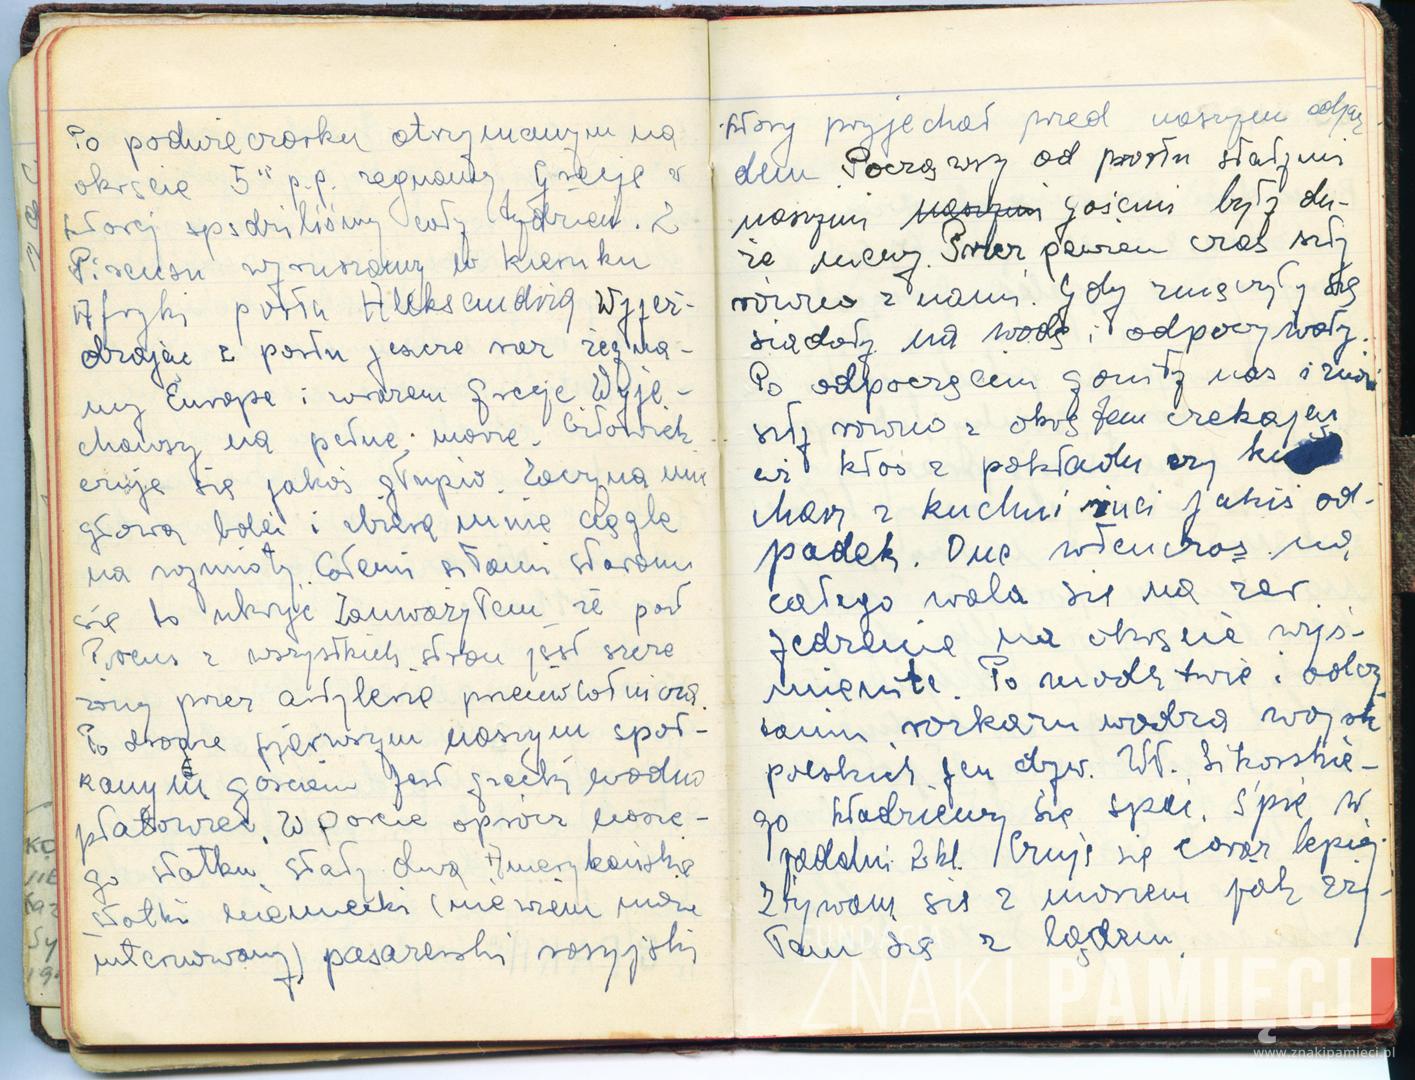 Po podwieczorku otrzymanym na
okręcie 5" p.p. żegnamy Grecję w
której spędziliśmy cały tydzień. Z
Pireusu wyruszamy w kieruku
Afryki portu Aleksandria Wyjeż-
dzając z portu jeszcze raz żegna-
my Europe i wrazem Grecje Wyje-
chawszy na pełne morze. Człowiek
czuje się jakoś głupio. Zaczyna mie
głowa boleć i zbiera mnie ciągle
na wymioty. Całemi siłami staram
się to ukryć Zauważyłem że port
Pireus z wszystkich stron jest strze
żony przez artylerię przeciwlotniczą.
Po drodze pierwszym naszym spot-
kanym gościem jest grecki wodno
płatowiec. W Porcie oprócz nasze-
go statku stały dwa Amerykańskie
statki niemiecki (nie wiem może
internowany) pasarerski rosyjski
który przyjechał przed naszym odjaz
dem Począwszy od portu stałymi
naszymi naszymi gośćmi były du-
że mewy. Przez pewien czas szły
równo z nami. Gdy zmęczyły się
siadały na wodę i odpoczywały.
Po odpoczęciu goniły nas i znów
szły równo z okrętem czekając
czy ktoś z pokładu czy ku
charz z kuchni rzuci jakiś od-
padek. One wtenczas na
całego wala się na żer.
Jedzenie na okręcie wyś-
mienite. Po modlitwie i odczy
taniu rozkazu wodza wojsk
polskich gen dyw. Wł. Sikorskie-
go kładziemy się spać. Śpię w
jadalni 2 kl. Czuję się coraz lepiej.
Zżywam się z morzem jak zży-
łem się z lądem.
FUNDACJA
ZNAKI PAMIĘCI
www.znakipamieci.pl